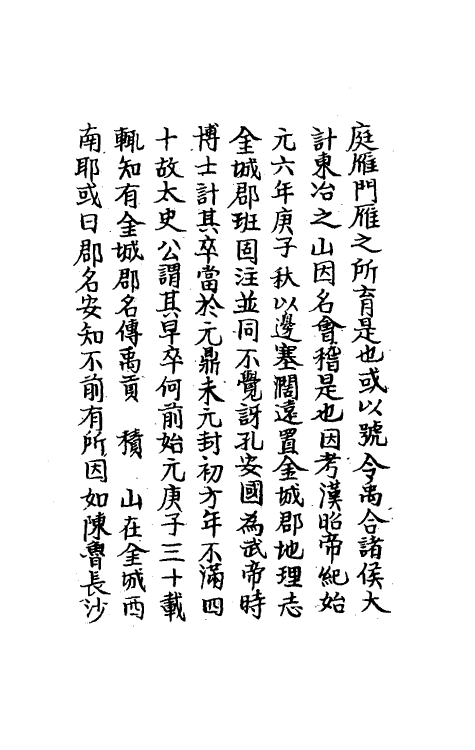 庭雁門雁之所育是也或以號令禹合諸侯大
計東冶之山因名會稽是也因考漢昭帝紀始
元六年庚子秋以邊塞闊遠置金城郡地理志
金城郡班固注並同不覺訝孔安國為武帝時
博士計其卒當於元鼎末元封初方年不滿四
十故太史公謂其早卒何前始元庚子三十載
輒知有金城郡名傳禹貢　積　山在金城西
南耶或曰郡名安知不前有所因如陳魯長沙